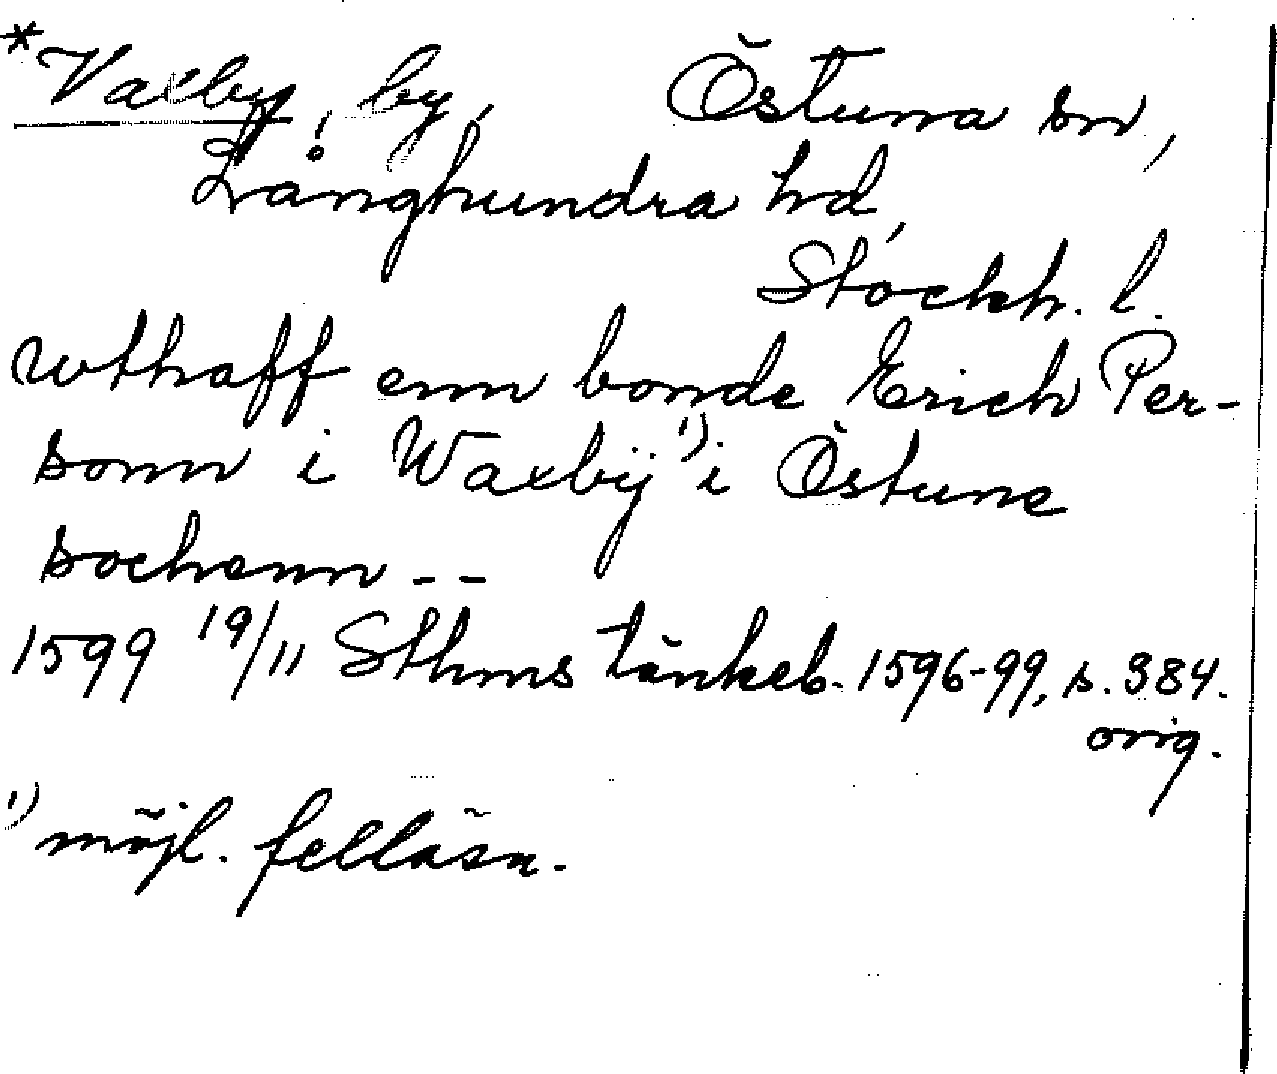 *Vaxby, by, Östuna sn,
Långhundra hd,
Stockh. l.
wthaff enn bonde Erich Per-
sonn i Waxbÿ¹⁾ i Östune
sochenn --
1599 19/11 Sthms tänkeb. 1596-99, s. 384.
orig.
¹⁾ möjl. felläsn.